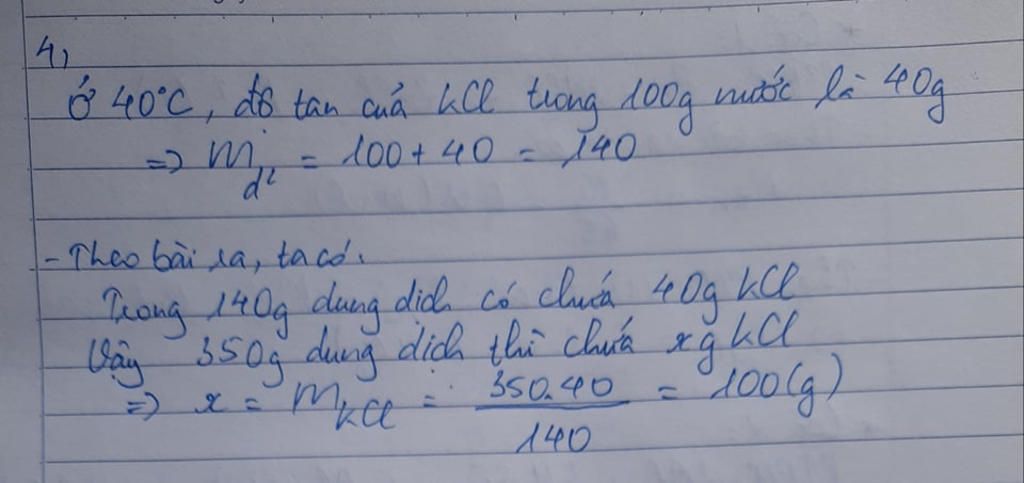 4,
Ở 40°C, độ tan của KCl trong 100g nước là 40g
=> m_d² = 100 + 40 = 140
- Theo bài ra, ta có.
Trong 140g dung dịch có chứa 40g KCl
Vậy 350g dung dịch thì chứa xg KCl
=> x = m_KCl = 350.40/140 = 100(g)